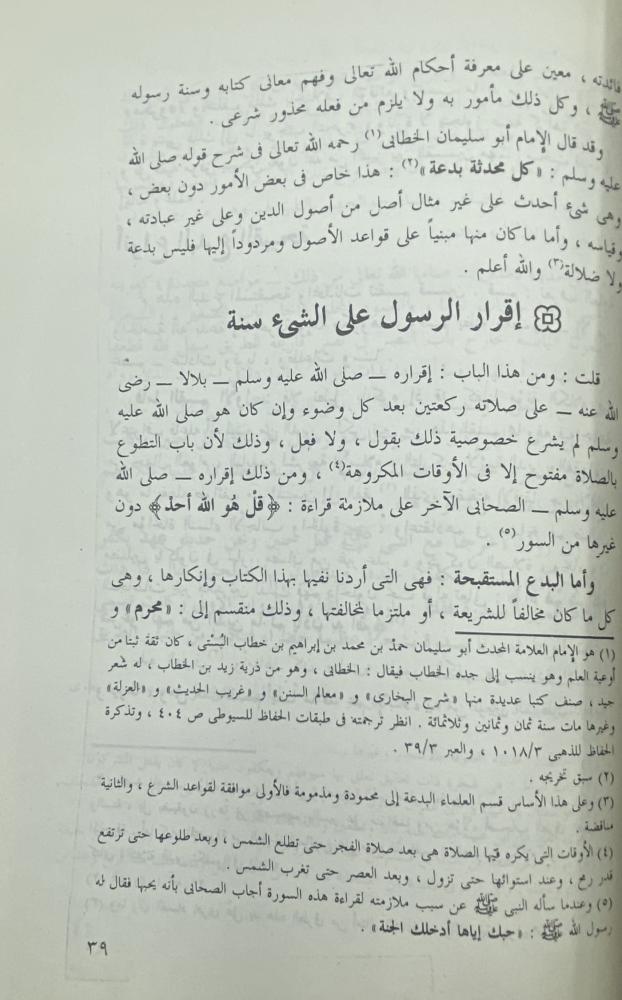 فائدته ، معين على معرفة أحكام الله تعالى وفهم معانى كتابه وسنة رسوله
ﷺ ، وكل ذلك مأمور به ولا يلزم من فعله محذور شرعى .
وقد قال الإمام أبو سليمان الخطابى(١) رحمه الله تعالى فى شرح قوله صلى الله
عليه وسلم : «كل محدثة بدعة»(٢) : هذا خاص فى بعض الأمور دون بعض ،
وهى شىء أحدث على غير مثال أصل من أصول الدين وعلى غير عبادته ،
وقياسه ، وأما ماكان منها مبنياً على قواعد الأصول ومردوداً إليها فليس بدعة
ولا ضلالة(٣) والله أعلم .
إقرار الرسول على الشىء سنة
قلت : ومن هذا الباب : إقراره ــ صلى الله عليه وسلم ــ بلالا ــ رضى
الله عنه ــ على صلاته ركعتين بعد كل وضوء وإن كان هو صلى الله عليه
وسلم لم يشرع خصوصية ذلك بقول ، ولا فعل ، وذلك لأن باب التطوع
بالصلاة مفتوح إلا فى الأوقات المكروهة(٤) ، ومن ذلك إقراره ــ صلى الله
عليه وسلم ــ الصحابى الآخر على ملازمة قراءة : ﴿قلْ هُو الله أحدْ﴾ دون
غيرها من السور(٥) .
وأما البدع المستقبحة : فهى التى أردنا نفيها بهذا الكتاب وإنكارها ، وهى
كل ما كان مخالفاً للشريعة ، أو ملتزما لمخالفتها ، وذلك منقسم إلى : «محرم» و
(١) هو الإمام العلامة المحدث أبو سليمان حمدْ بن محمد بن إبراهيم بن خطاب البُسْتى ، كان ثقة ثبتا من
أوعية العلم وهو ينسب إلى جده الخطاب فيقال : الخطابى ، وهو من ذرية زيد بن الخطاب ، له شعر
جيد ، صنف كتبا عديدة منها «شرح البخارى» و «معالم السنن» و «غريب الحديث» و «العزلة»
وغيرها مات سنة ثمان وثمانين وثلاثمائة . انظر ترجمته فى طبقات الحفاظ للسيوطى ص ٤٠٤ ، وتذكرة
الحفاظ للذهبى ١٠١٨/٣ ، والعبر ٣٩/٣ .
(٢) سبق تخريجه .
(٣) وعلى هذا الأساس قسم العلماء البدعة إلى محمودة ومذمومة فالأولى موافقة لقواعد الشرع ، والثانية
مناقضة .
(٤) الأوقات التى يكره فيها الصلاة هى بعد صلاة الفجر حتى تطلع الشمس ، وبعد طلوعها حتى ترتفع
قدر رمح ، وعند استوائها حتى تزول ، وبعد العصر حتى تغرب الشمس .
(٥) وعندما سأله النبى ﷺ عن سبب ملازمته لقراءة هذه السورة أجاب الصحابى بأنه يحبها فقال له
رسول الله ﷺ : «حبك إياها أدخلك الجنة» .
٣٩